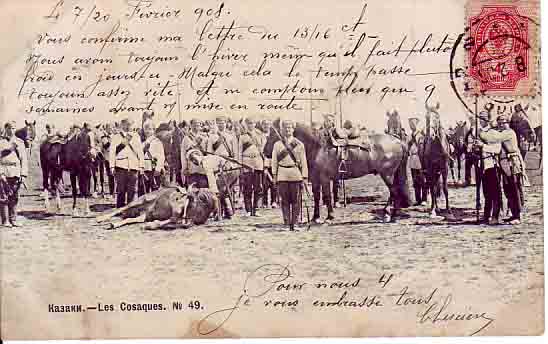 Le 7/20 Février 908.
Vous confirme ma lettre du 13/16 ct
Nous avons toujours l'hiver même qu'il fait plutôt
froid ces jours-ci - Malgré cela le temps passe
toujours assez vite et ne comptons plus que 9
semaines avant mise en route
Казаки.—Les Cosaques. № 49.
Pour nous 4
je vous embrasse tous
Lucien